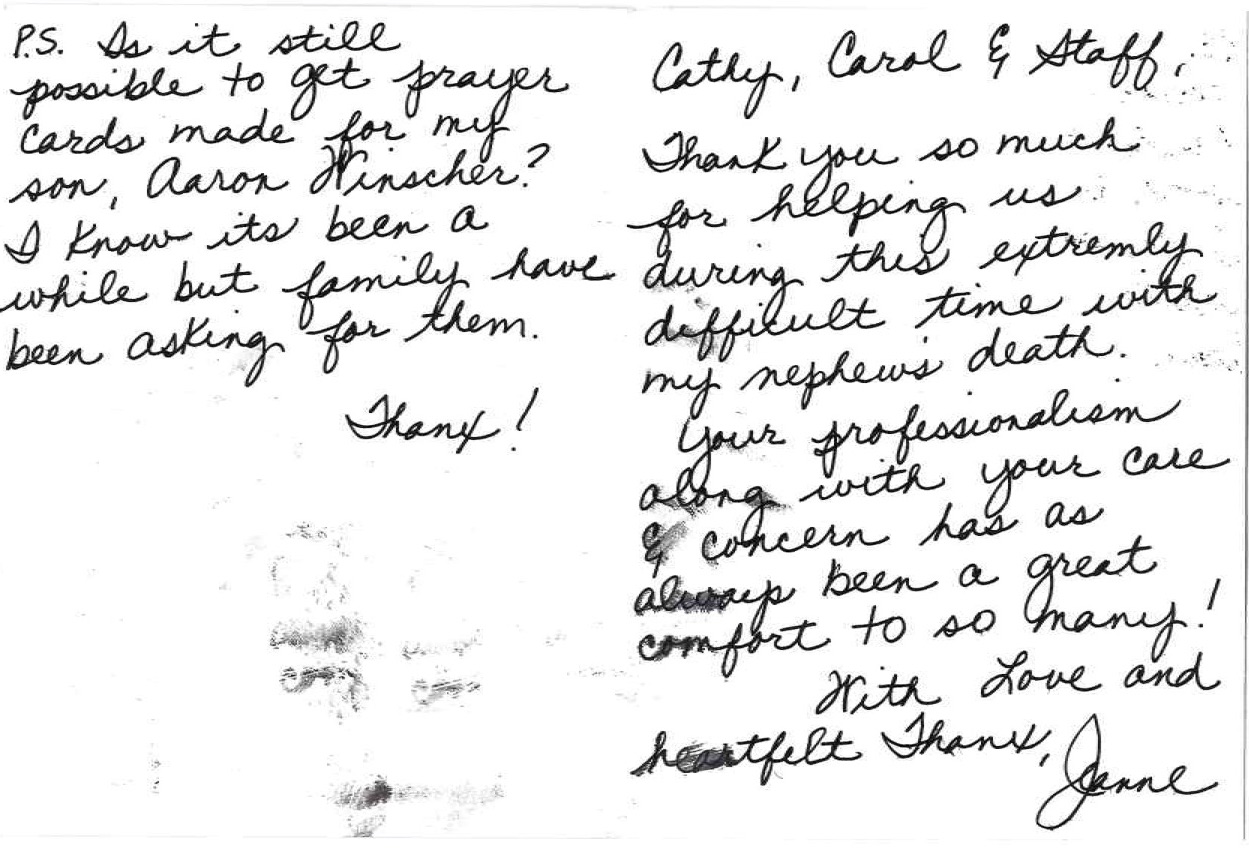 Cathy, Carol & Staff,
Thank you so much
for helping us
during this extremly
difficult time with
my nephews death.
Your professionalism
along with your care
& concern has as
always been a great
comfort to so many!
With Love and
heartfelt Thanx,
Jeanne
P.S. Is it still
possible to get prayer
cards made for my
son, Aaron Winscher?
I know its been a
while but family have
been asking for them.
Thanx!